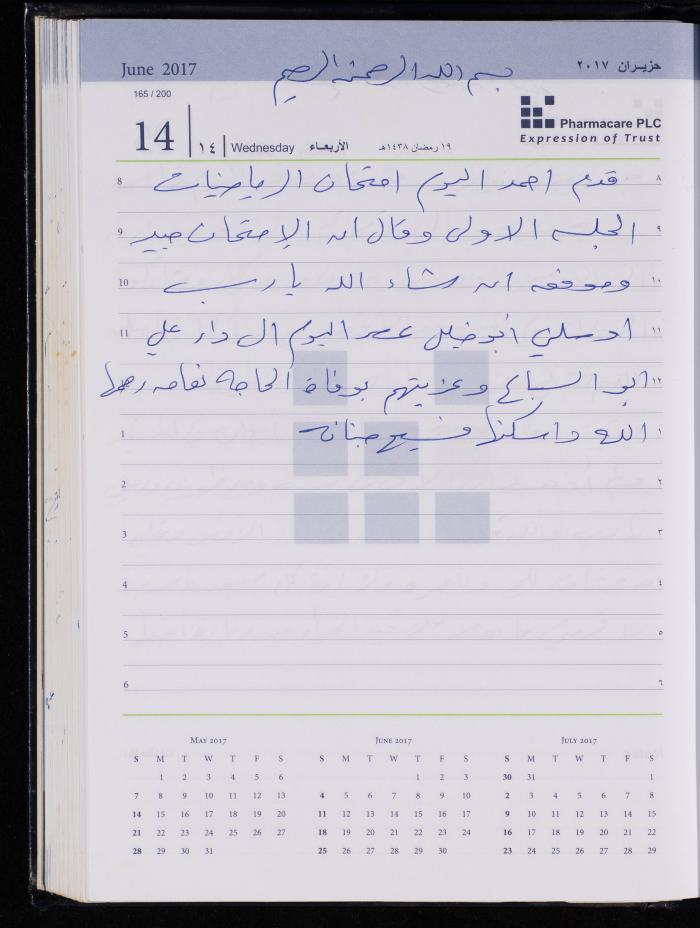 June 2017
حزيـران ٢٠١٧
بسم الله الرحمن الرحيم
165 / 200
14
١٤
Wednesday
الأربعـاء
١٩ رمضان ١٤٣٨هـ
Pharmacare PLC
Expression of Trust
8 قدم احمد اليوم امتحان الرياضيات ٨
9 الجلسه الاولى وقال ان الإمتحان جيد ٩
10 وموفقه ان شاء الله يا رب ١٠
11 عصر اليوم ال دار علي ١١
ابو السباع وعزيتهم بوفاة الحاجه رحمها ١٢
1 الله واسكنها فسيح جنانه ١
2 ٢
3 ٣
4 ٤
5 ٥
6 ٦
MAY 2017
S M T W T F S
1 2 3 4 5 6
7 8 9 10 11 12 13
14 15 16 17 18 19 20
21 22 23 24 25 26 27
28 29 30 31
JUNE 2017
S M T W T F S
1 2 3
4 5 6 7 8 9 10
11 12 13 14 15 16 17
18 19 20 21 22 23 24
25 26 27 28 29 30
JULY 2017
S M T W T F S
30 31 1
2 3 4 5 6 7 8
9 10 11 12 13 14 15
16 17 18 19 20 21 22
23 24 25 26 27 28 29